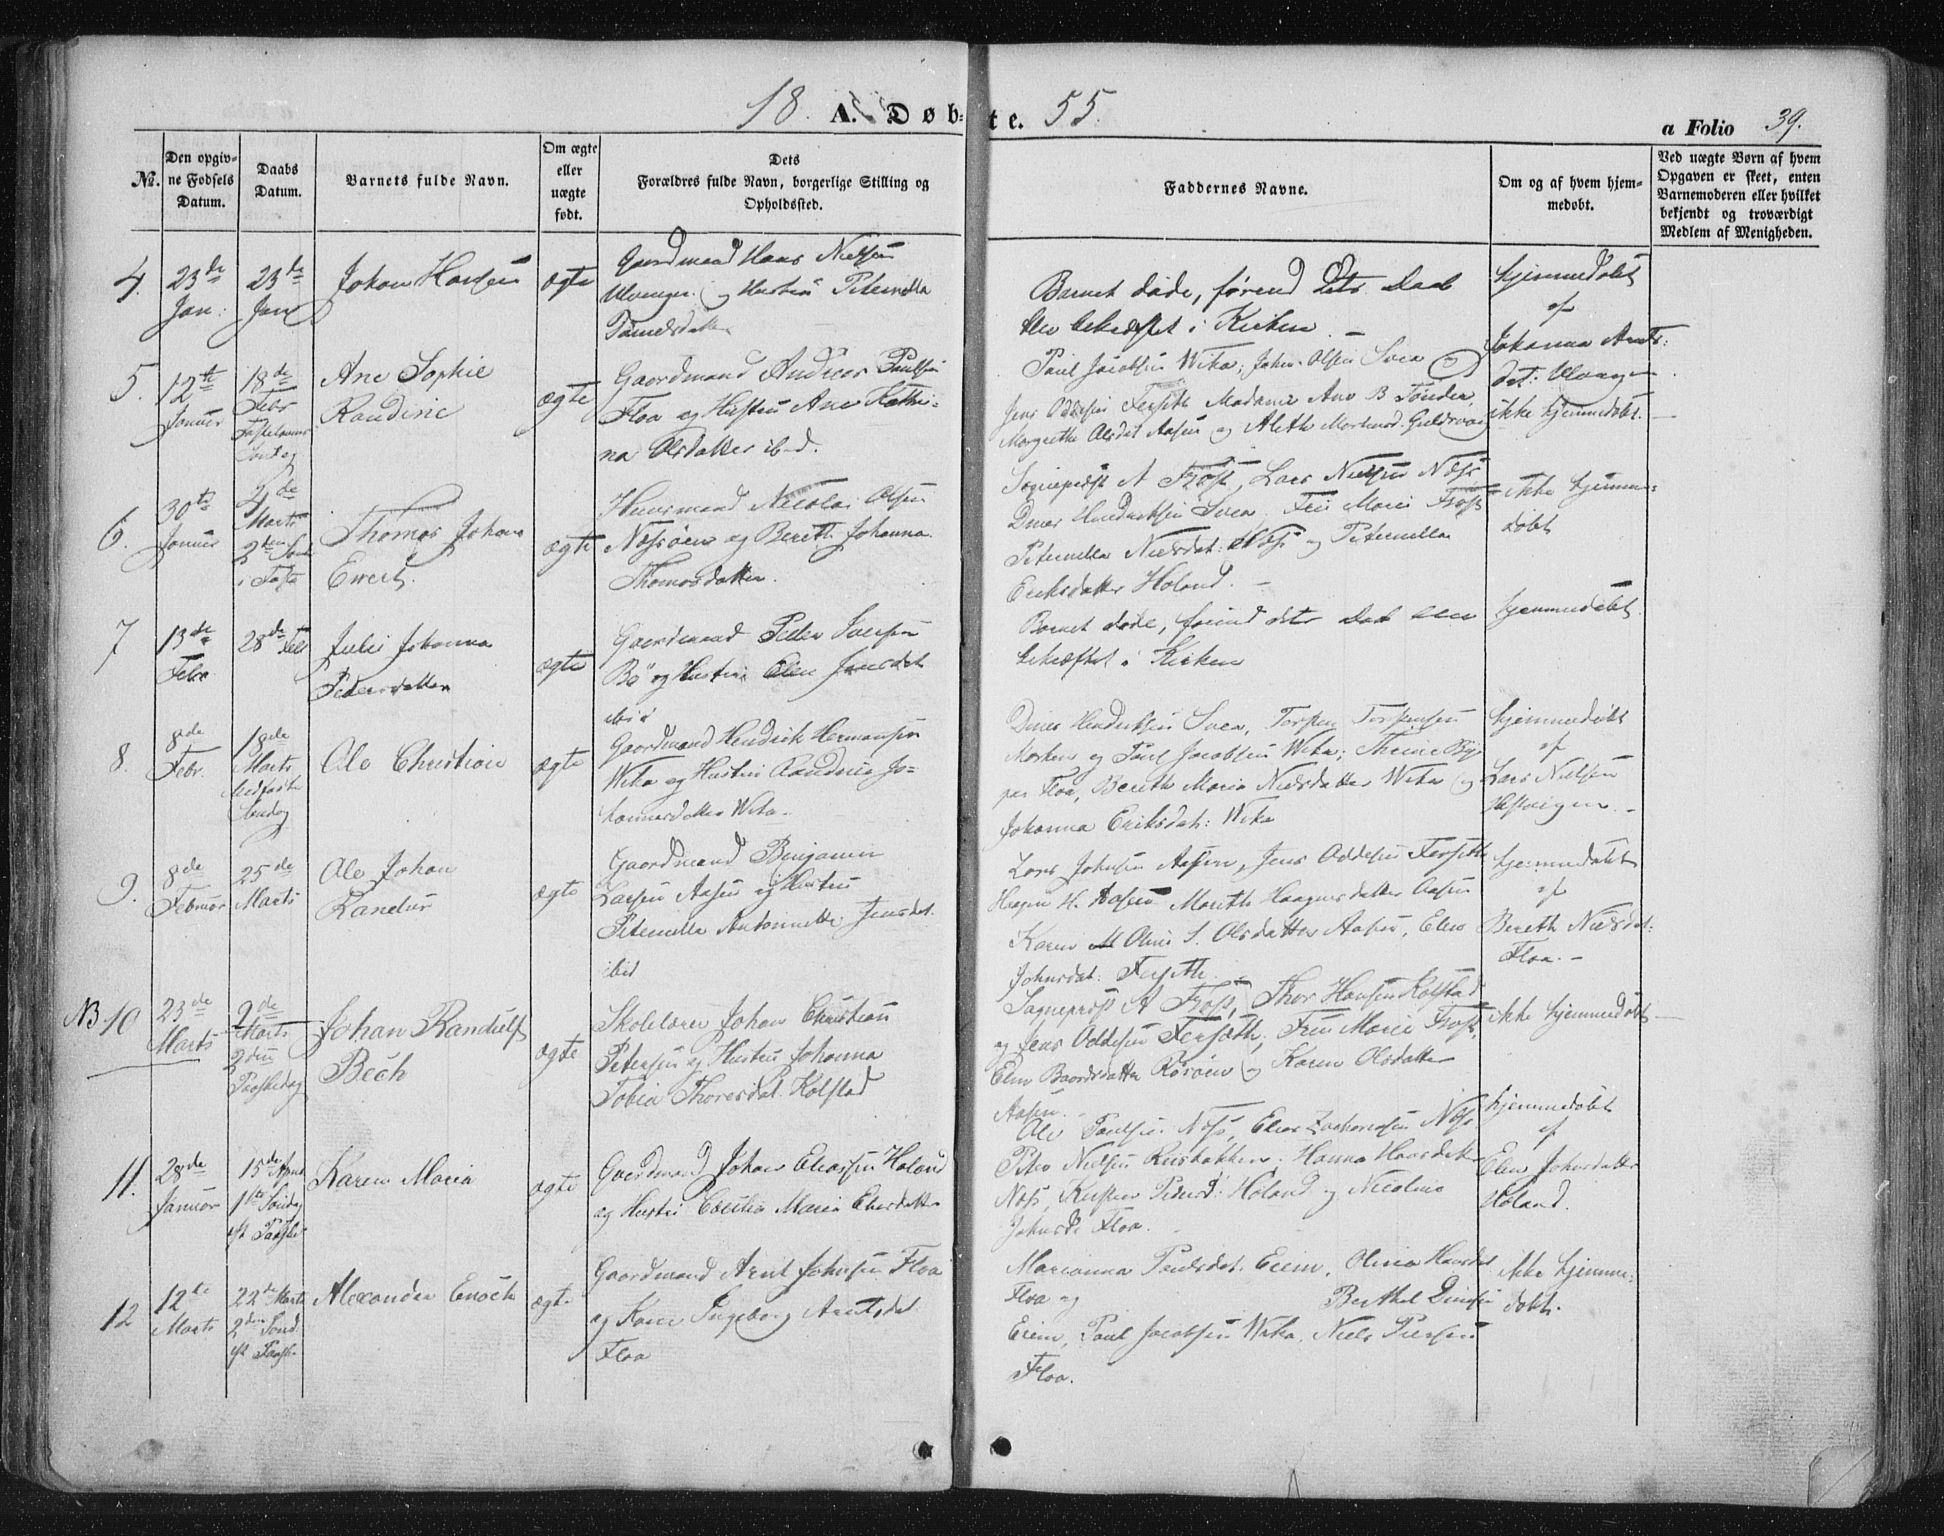 18 A. Døbte. 55.
a Folio 39.
No.
Den opgivne Fødsels Datum.
Daabs Datum.
Barnets fulde Navn.
Om ægte eller uægte født.
Dets Forældres fulde Navn, borgerlige Stilling og Opholdssted.
Faddernes Navne.
Om og af hvem hjemmedøbt.
Ved uægte Børn af hvem Opgaven er skeet, enten Barnemoderen eller hvilket bekjendt og troværdigt Medlem af Menigheden.
4. 23de Jan: 23de Jan Johan Hansen ægte
Gaardmand Hans Nielsen
og Hustru Peternella
Danielsdatter
Barnet døde, førend dets Daab
blev bekræftet i Kirken
hjemmedøbt
af
Johanna Arnts:
dat:
5. 12te Januar 18de Febr Fastelavns Søndag
Ane Sophie
Randine
ægte
Gaardmand Andreas Paulsen
Floa og Hustru Ane Kathri-
na Olsdatter ibid.
Paul Jacobsen Wika, Johan Olsen Svea og
Jens Oddesen Fersæth Madame Ane B Tønder,
Margrethe Olsdat Aasen og Aleth Mortensd. Guldsvaag
ikke hjemmedøbt.
6. 30te Januar 4de Marts 2den Sønd i Faste
Thomas Johan
Ewert.
ægte
Huusmand Nicolai Olsen
Næsøien og Bereth Johanna
Thomasdatter.
Sognepræst A Frost, Lars Nielsen Næss
Dines Hendriksen Svea, Fru Marie Frost
Peternella Nielsdat: Næss og Peternella
Eriksdatter Høland.
ikke hjemme-
døbt
7 13de Febr 28de Febr
Julie Johanna
Pedersdatter
ægte
Gaardmand Peder Iversen
Bø og Hustru Elen Jensdat
ibid
Barnet døde, førend dets Daab blev
bekræftet i Kirken
hjemmedøbt.
8. 8de Febr. 18de Marts Midfaste Søndag
Ole Christian ægte
Gaardmand Hendrik Hermansen
Wika og Hustru Randine Jo-
hannesdatter Wika.
Dines Hendriksen Svea, Torsten Torstensen
Morken og Paul Jacobsen Wika;
Floa, Bereth Maria Nielsdatter Wika og
Johanna Eriksdat: Wika
hjemmedøbt
af
Lars Nielsen
9. 8de Februar 25de Marts
Ole Johan
Randur
ægte
Gaardmand Benjamin
Larsen Aasen og Hustru
Peternelle Antonnette Jensdat.
ibid
Lars Johnsen Aasen, Jens Oddesen Fersæth
Haagen H. Aasen Mareth Haagensdatter Aasen
Karen Oline S. Olsdatter Aasen, Elen
Johnsdat: Fersæth.
hjemmedøbt
af
Bereth Nielsdat:
Floa.
NB 10 23de Marts 9de 2den Paaskedag
Johan Randulf
Bech
ægte
Skolelærer Johan Christian
Petersen og Hustru Johanna
Tobia Thoresdat. Kolstad
Sognepræst A Frost, Thor Hansen Kolstad
og Jens Oddesen Fersæth, Fru Marie Frost,
Elen Baardsdatter Rosøien og Karen Olsdatter
Aasen.
ikke hjemmedøbt
11. 28de Januar 15de April 1ste Søndag eft Paaske
Karen Maria ægte
Gaardmand Johan Eliassen Høland
og Hustru Cecilia Maria Eliasdatter
Ole Paulsen Næss, Elias Zachariasen Næss
Peter Nielsen Risbakken, Hanna Hansdatter
Næss, Kirsten Pedersd: Høland og Nicoline
Johnsd: Floa.
hjemmedøbt
af
Elen Johnsdatter
Høland.
12 12te Marts 22de 2den Sønd. eft Paaske
Alexander Enoch ægte
Gaardmand Arnt Johnsen Floa
og Kone Ingeborg Arntsdat.
Floa
Marianna Pedersdat: Eriem, Olina Hansdat
Floa og Berthel Dinesen
Eriem, Paul Jacobsen Wika, Niels Persen
Floa.
ikke hjemme-
døbt.